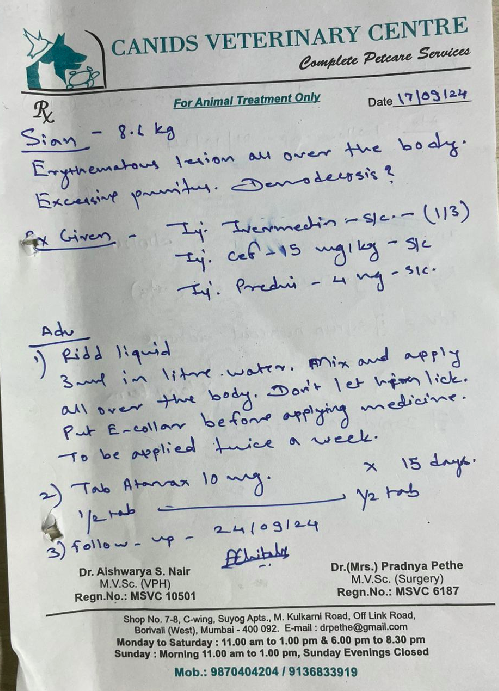 CANIDS VETERINARY CENTRE
Complete Petcare Services
Rx
For Animal Treatment Only
Date 17/09/24
Sian - 8.6 kg
Erythematous lesion all over the body.
Excessive pruritus. Demodecosis?
Rx Given - Inj. Ivermectin - s/c. - (1/3)
Inj. Cef - 15 mg/kg - s/c
Inj. Predni - 4 mg - s/c.
Adv
1) Ridd liquid
3 ml in litre water. Mix and apply
all over the body. Don't let him lick.
Put E-collar before applying medicine.
To be applied twice a week.
2) Tab Atarax 10 mg.
1/2 tab ——— 1/2 tab x 15 days.
3) Follow - up - 24/09/24
Dr. Aishwarya S. Nair
M.V.Sc. (VPH)
Regn.No.: MSVC 10501
Dr.(Mrs.) Pradnya Pethe
M.V.Sc. (Surgery)
Regn.No.: MSVC 6187
Shop No. 7-8, C-wing, Suyog Apts., M. Kulkarni Road, Off Link Road,
Borivali (West), Mumbai - 400 092. E-mail : drpethe@gmail.com
Monday to Saturday : 11.00 am to 1.00 pm & 6.00 pm to 8.30 pm
Sunday : Morning 11.00 am to 1.00 pm, Sunday Evenings Closed
Mob.: 9870404204 / 9136833919